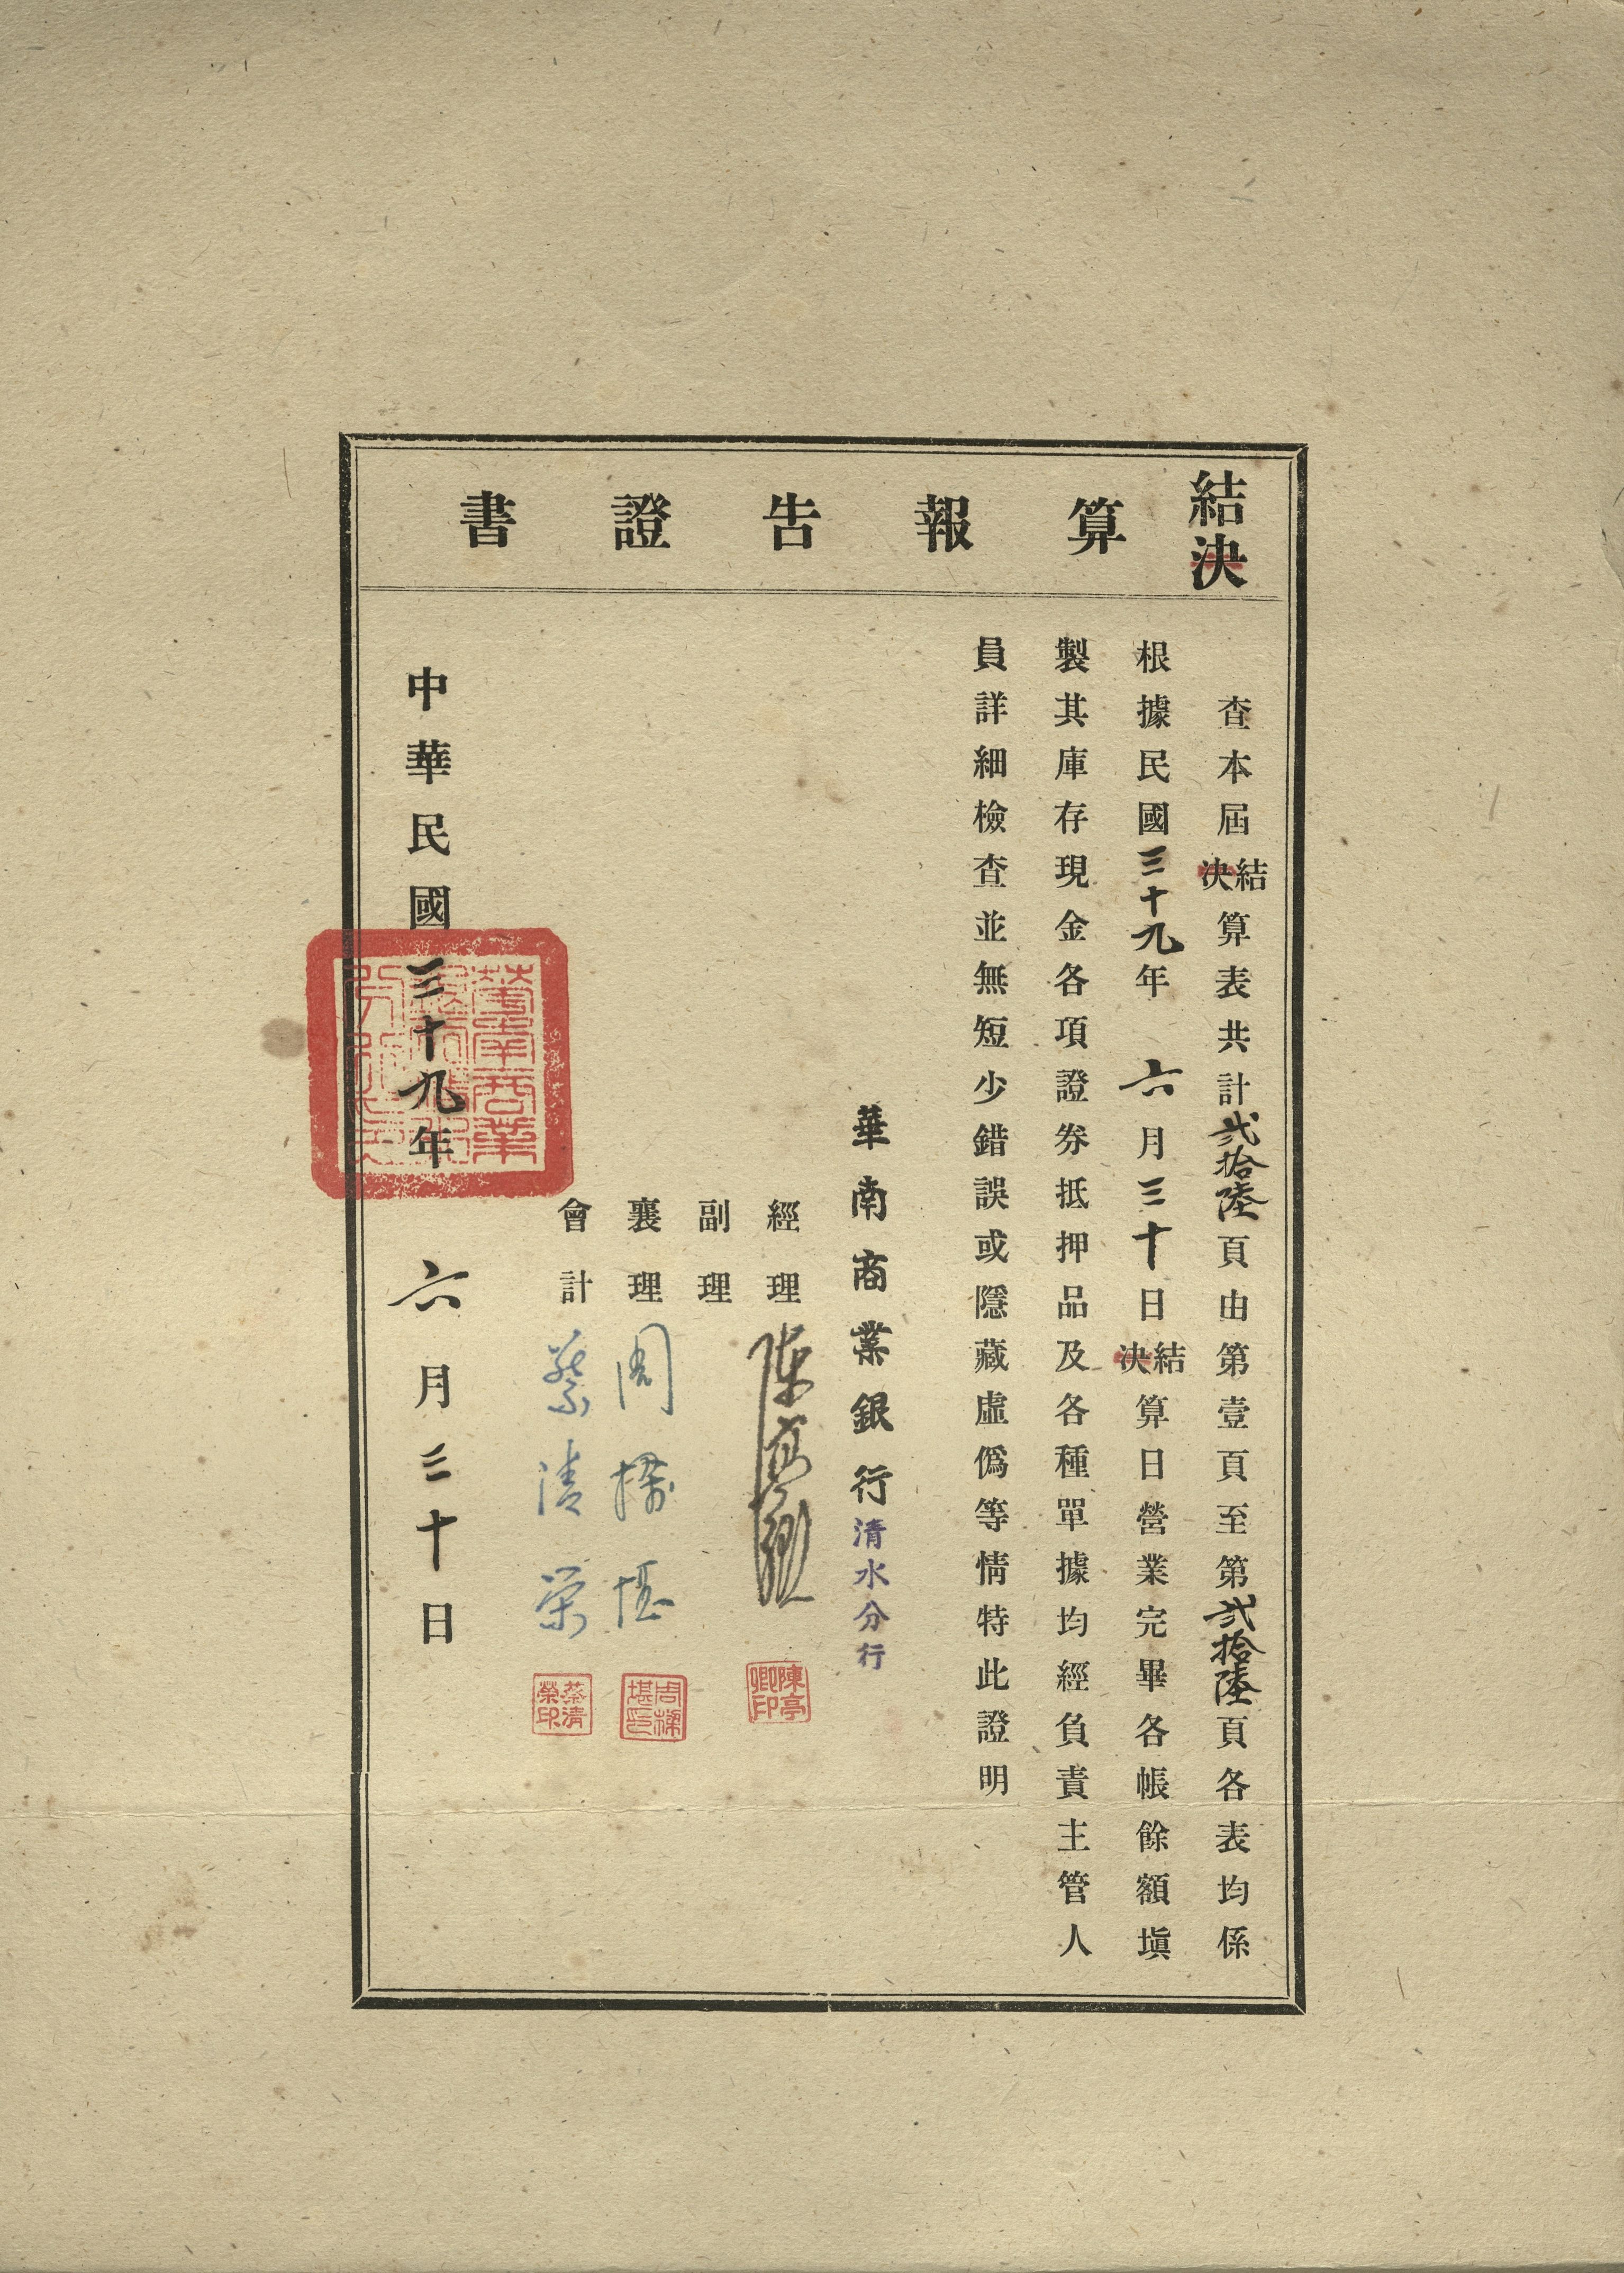 結決算報告證書
查本屆結決算表共計貳拾陸頁由第壹頁至第貳拾陸頁各表均係
根據民國三十九年六月三十日結決算日營業完畢各帳餘額塡
製其庫存現金各項證券抵押品及各種單據均經負責主管人
員詳細檢查並無短少錯誤或隱藏虛僞等情特此證明
華南商業銀行清水分行
經理 陳亭卿 陳亭卿印
副理
襄理 周梯堪 周梯堪印
會計 蔡清榮 蔡清榮印
中華民國三十九年六月三十日
華南商業